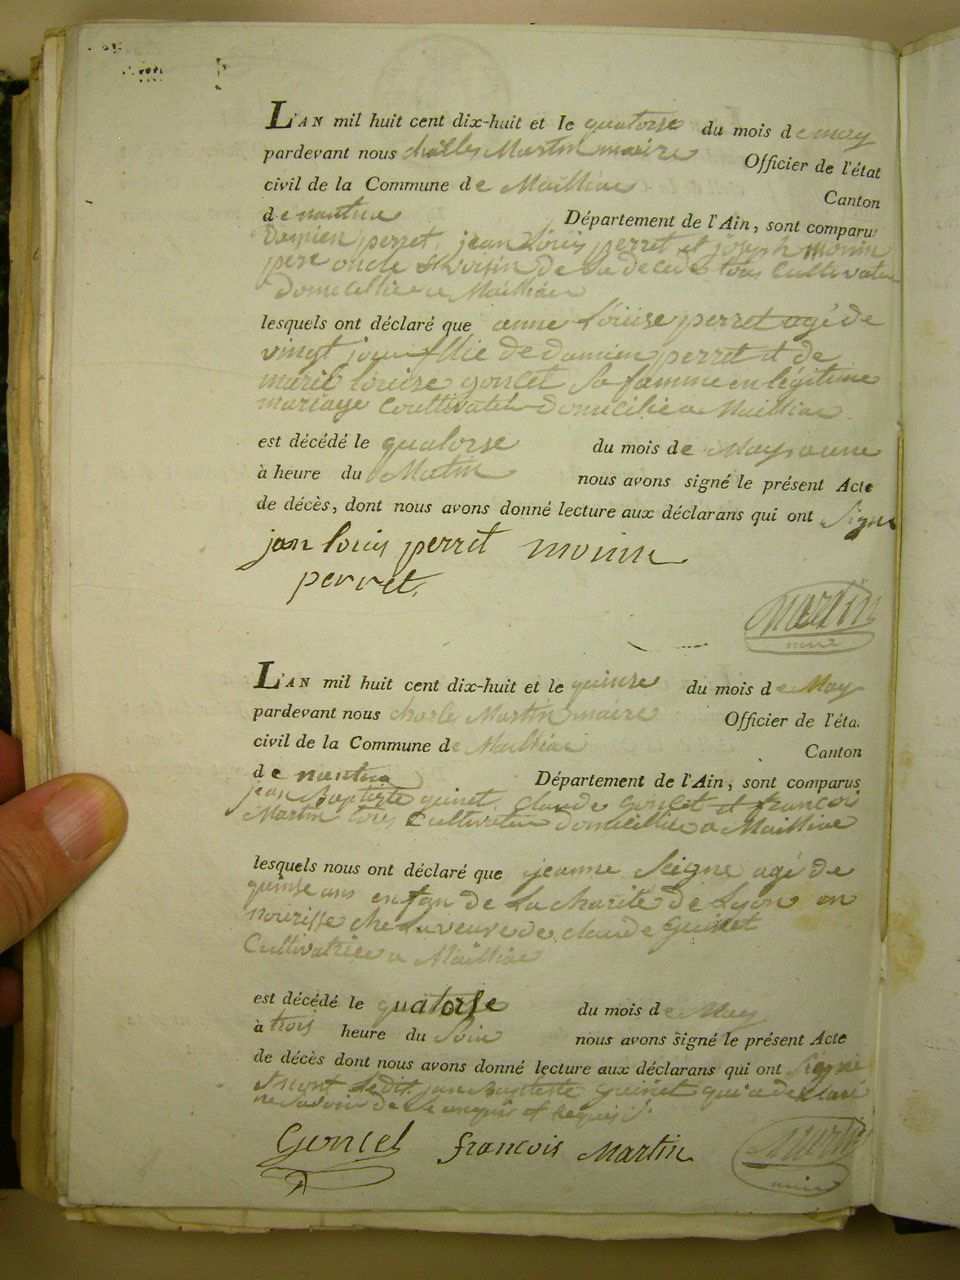 L'AN mil huit cent dix-huit et le quatorse du mois de may
pardevant nous challes Martin maire Officier de l'état
civil de la Commune de Maillia Canton
de nantua Département de l'Ain, sont comparus
Damien perret, jean Louis perret et joseph monin
pere oncle & voisin de la decede tous Cultivateu
domicillie a Maillia
lesquels ont déclaré que anne Louise perret agé de
vingt jour fllie de damien perret et de
marie louise goncet sa famme en légitime
mariage Coultivateur domicilié a Maillia
est décédé le quatorse du mois de May a une
à heure du Matin nous avons signé le présent Acte
de décès, dont nous avons donné lecture aux déclarans qui ont Signe
jan louis perret monin
perret,
Martin
maire
L'AN mil huit cent dix-huit et le quinse du mois de May
pardevant nous charle Martin maire Officier de l'éta.
civil de la Commune de Maillia Canton
de nantua Département de l'Ain, sont comparus
jean Baptiste guinet, claude goncet et francois
Martin tous Cultivateu domicillie a Maillia
lesquels nous ont déclaré que jeanne Seigne agé de
quinse ans enfan de La charité de Lyon en
nourisse che la veuve de claude guinet
Cultivatrice a Maillia
est décédé le quatorse du mois de May
à trois heure du Soir nous avons signé le présent Acte
de décès dont nous avons donné lecture aux déclarans qui ont Signé
Sinont ledit jan Baptiste guinet qui a declaré
ne savoir de ce enquis et Requis
Goncet francois Martin
Martin
maire